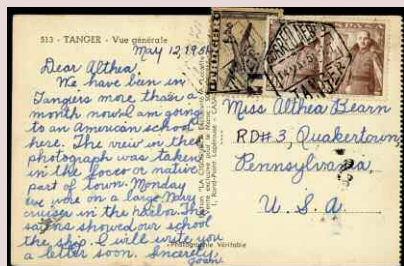 513 - TANGER - Vue générale
May 12, 1951
Dear Althea,
We have been in
Tangiers more than a
month now. I am going
to an American school
here. The view in the
photograph was taken
in the socco or native
part of town. Monday
we were on a large Navy
cruiser in the harbor. The
sailors showed our school
the ship. I will write you
a letter soon. Sincerely,
Joan
Photographie Véritable
TANGER
Miss Althea Hearn
RD#3, Quakertown,
Pennsylvania,
U. S. A.